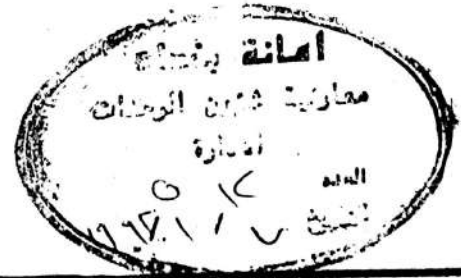 امانة بغداد
معاونية شؤون الوحدات
الادارة
العدد ٥١٢
التاريخ ٧ / ١ /